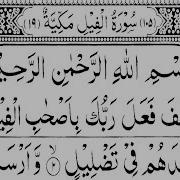 (۱۰۵) سُوْرَةُ الْفِيْلِ مَكِّيَّةٌ (۱۹)
سْمِ اللهِ الرَّحْمٰنِ الرَّحِيْ
يْفَ فَعَلَ رَبُّكَ بِاَصْحٰبِ الْفِيْ
دَهُمْ فِيْ تَضْلِيْلٍ ۙ ۲ وَّاَرْسَ